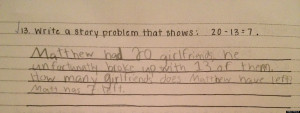 13. Write a story problem that shows: 20 - 13 = 7.
Matthew had 20 girlfriends he
unfortnatly broke up with 13 of them.
How many girlfriends does Matthew have left?
Matt has 7 left.